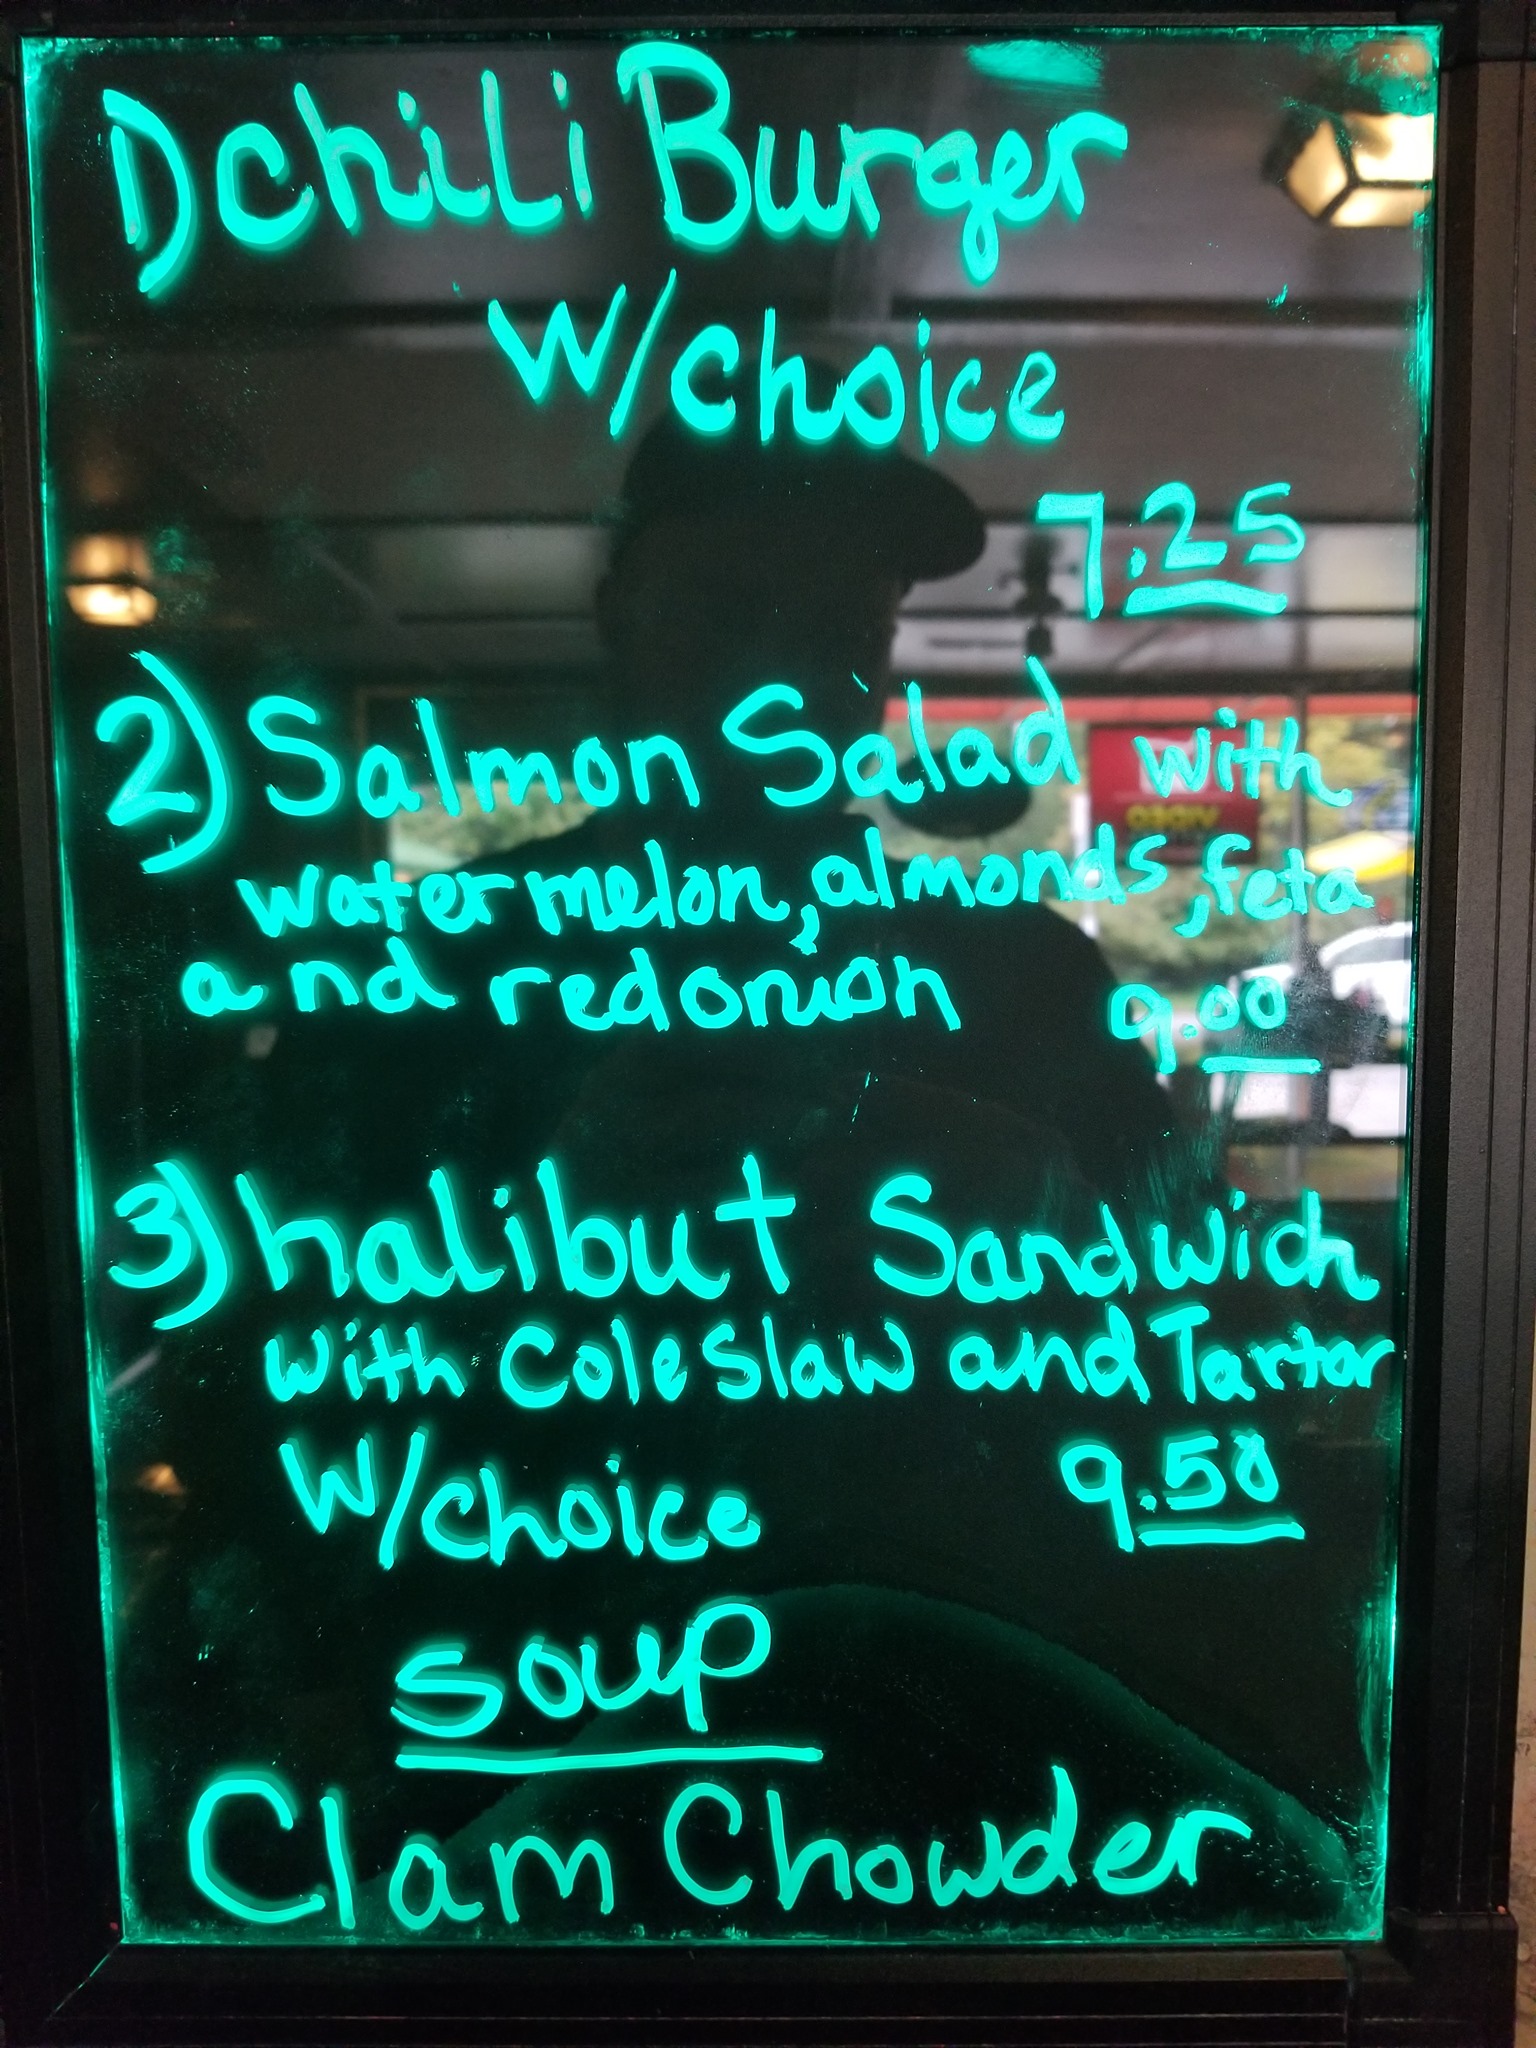 1) Chili Burger
W/choice
7.25
2) Salmon Salad with
watermelon, almonds, feta
and red onion 9.00
3) halibut Sandwich
with Coleslaw and Tartar
W/choice 9.50
soup
Clam Chowder